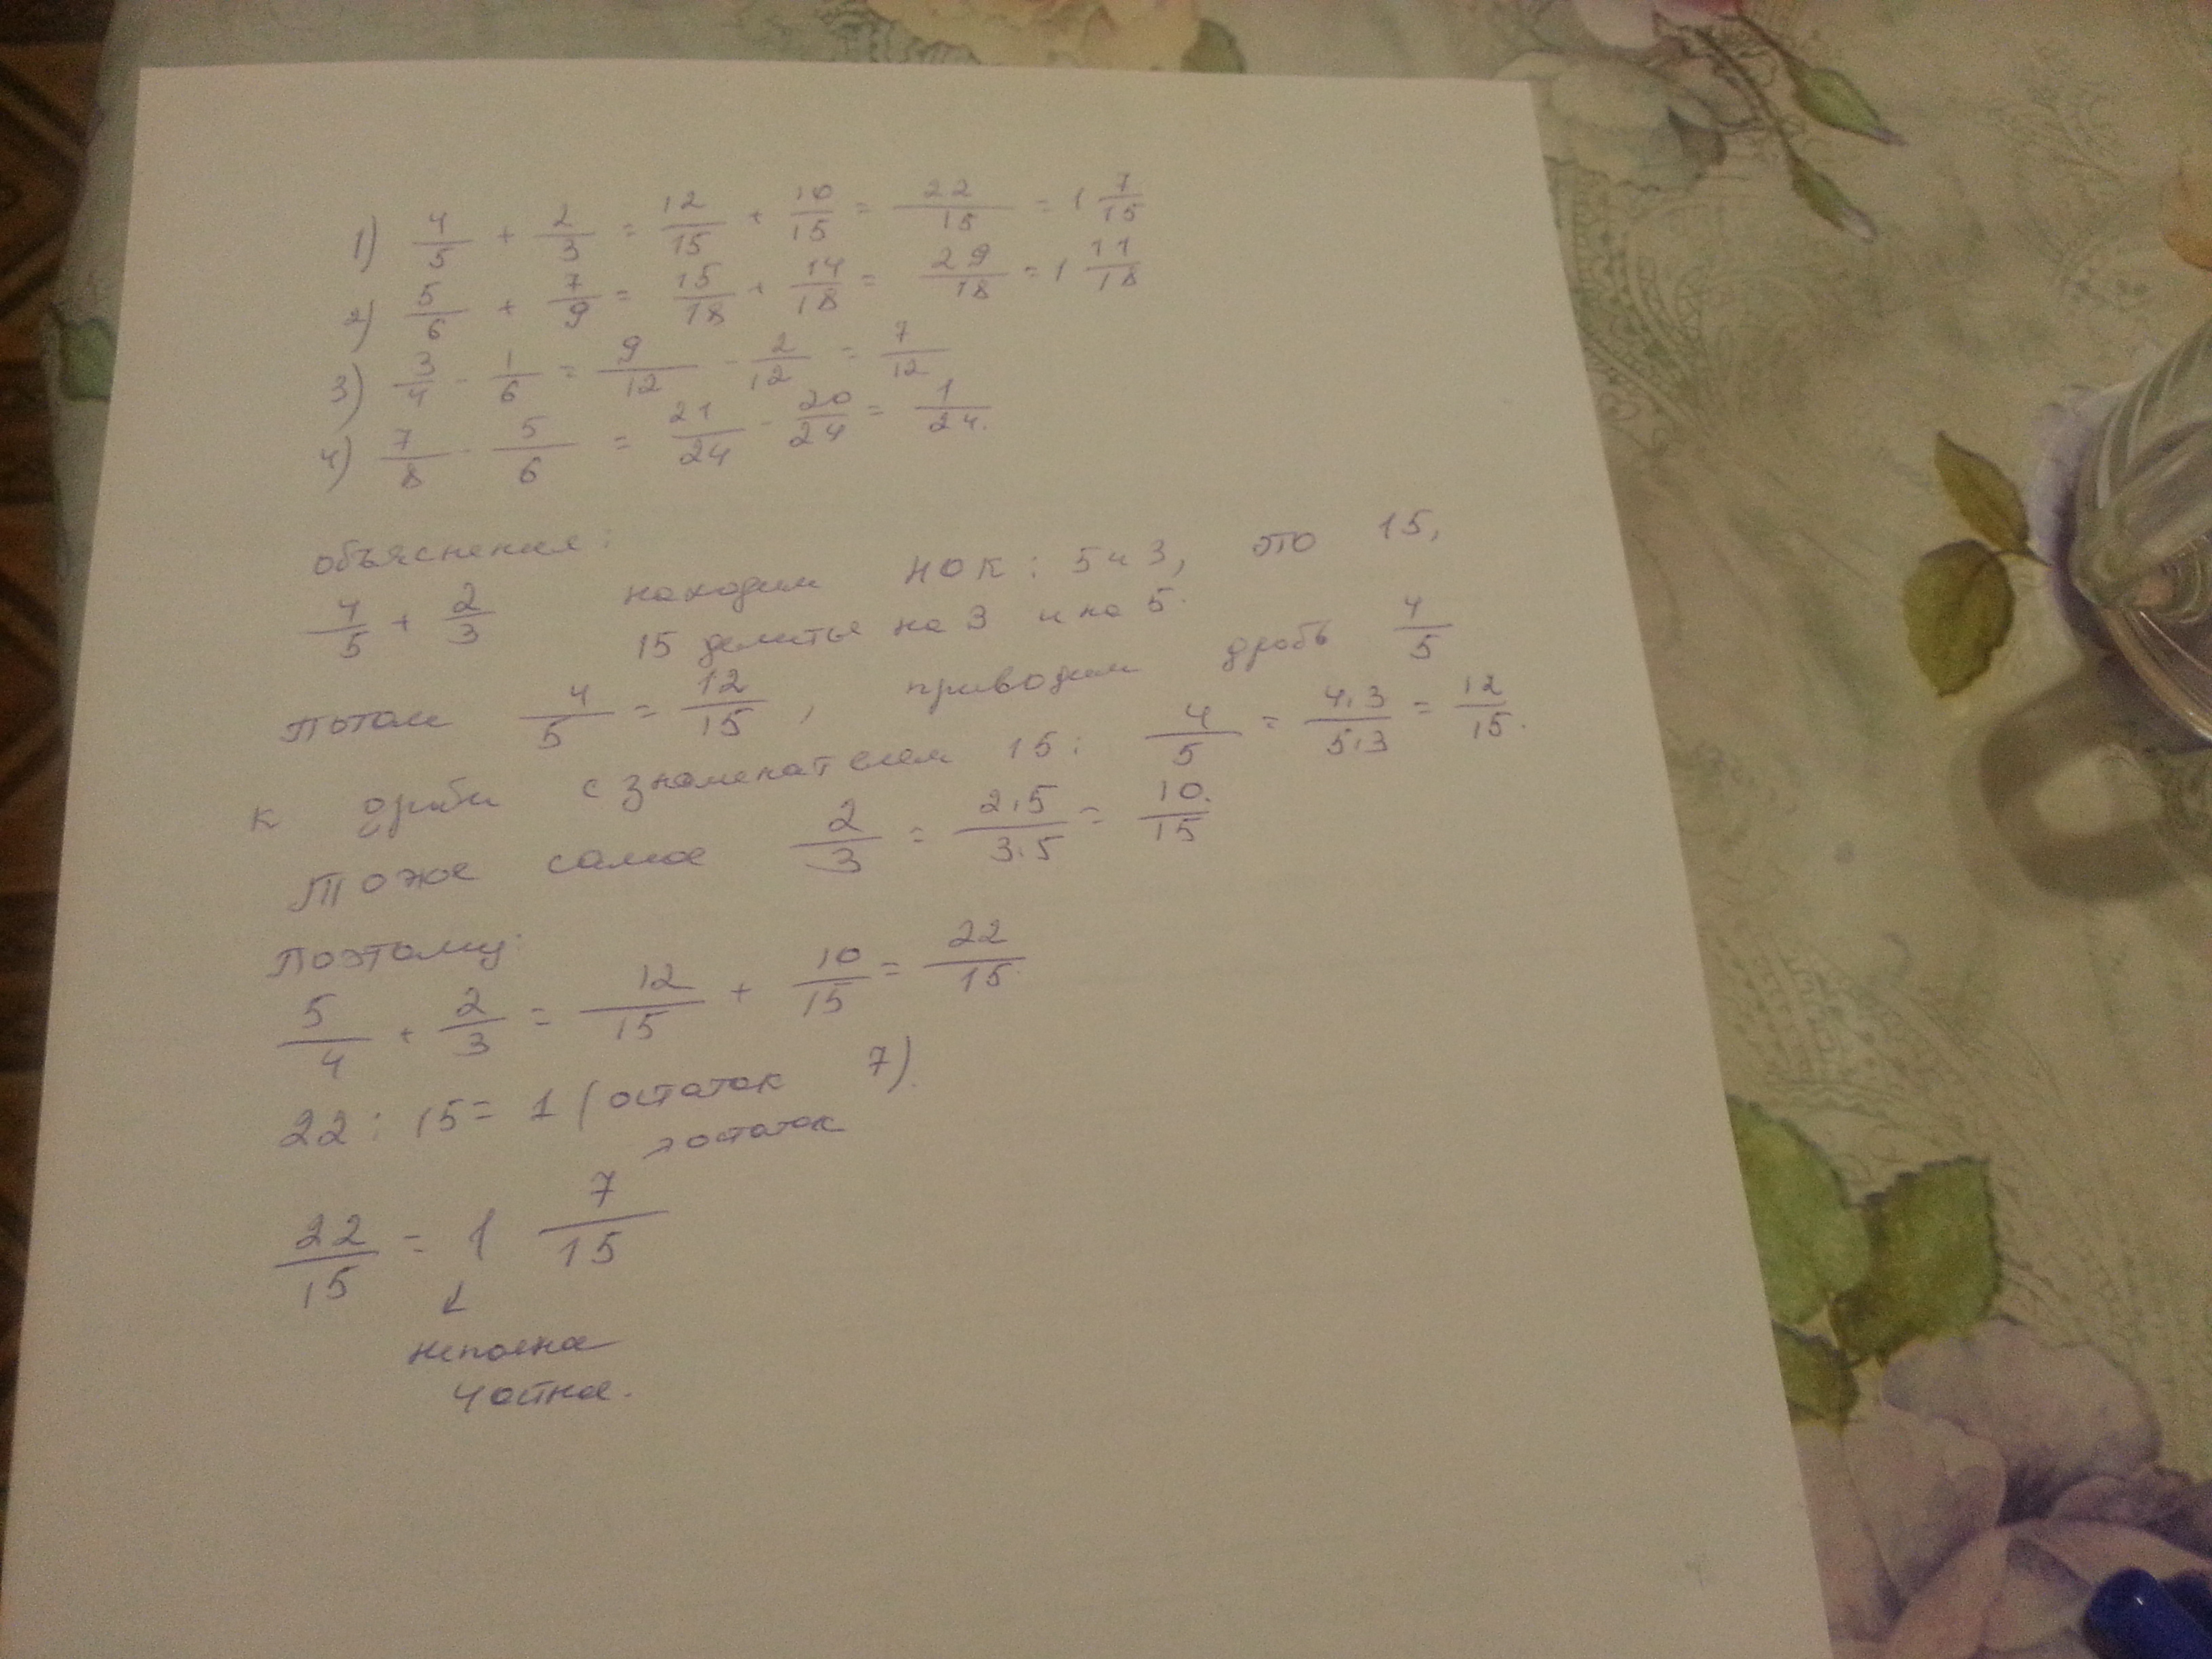 1) 4/5 + 2/3 = 12/15 + 10/15 = 22/15 = 1 7/15
2) 5/6 + 7/9 = 15/18 + 14/18 = 29/18 = 1 11/18
3) 3/4 - 1/6 = 9/12 - 2/12 = 7/12
4) 7/8 - 5/6 = 21/24 - 20/24 = 1/24.
объяснения:
4/5 + 2/3 находим НОК: 5 и 3, это 15,
15 делиться на 3 и на 5.
Потом 4/5 = 12/15, приводим дробь 4/5
к дроби с знаменателем 15: 4/5 = 4·3/5·3 = 12/15.
Тоже самое 2/3 = 2·5/3·5 = 10/15
Поэтому:
5/4 + 2/3 = 12/15 + 10/15 = 22/15
22 : 15 = 1 (остаток 7).
остаток
22/15 = 1 7/15
неполная
частное.